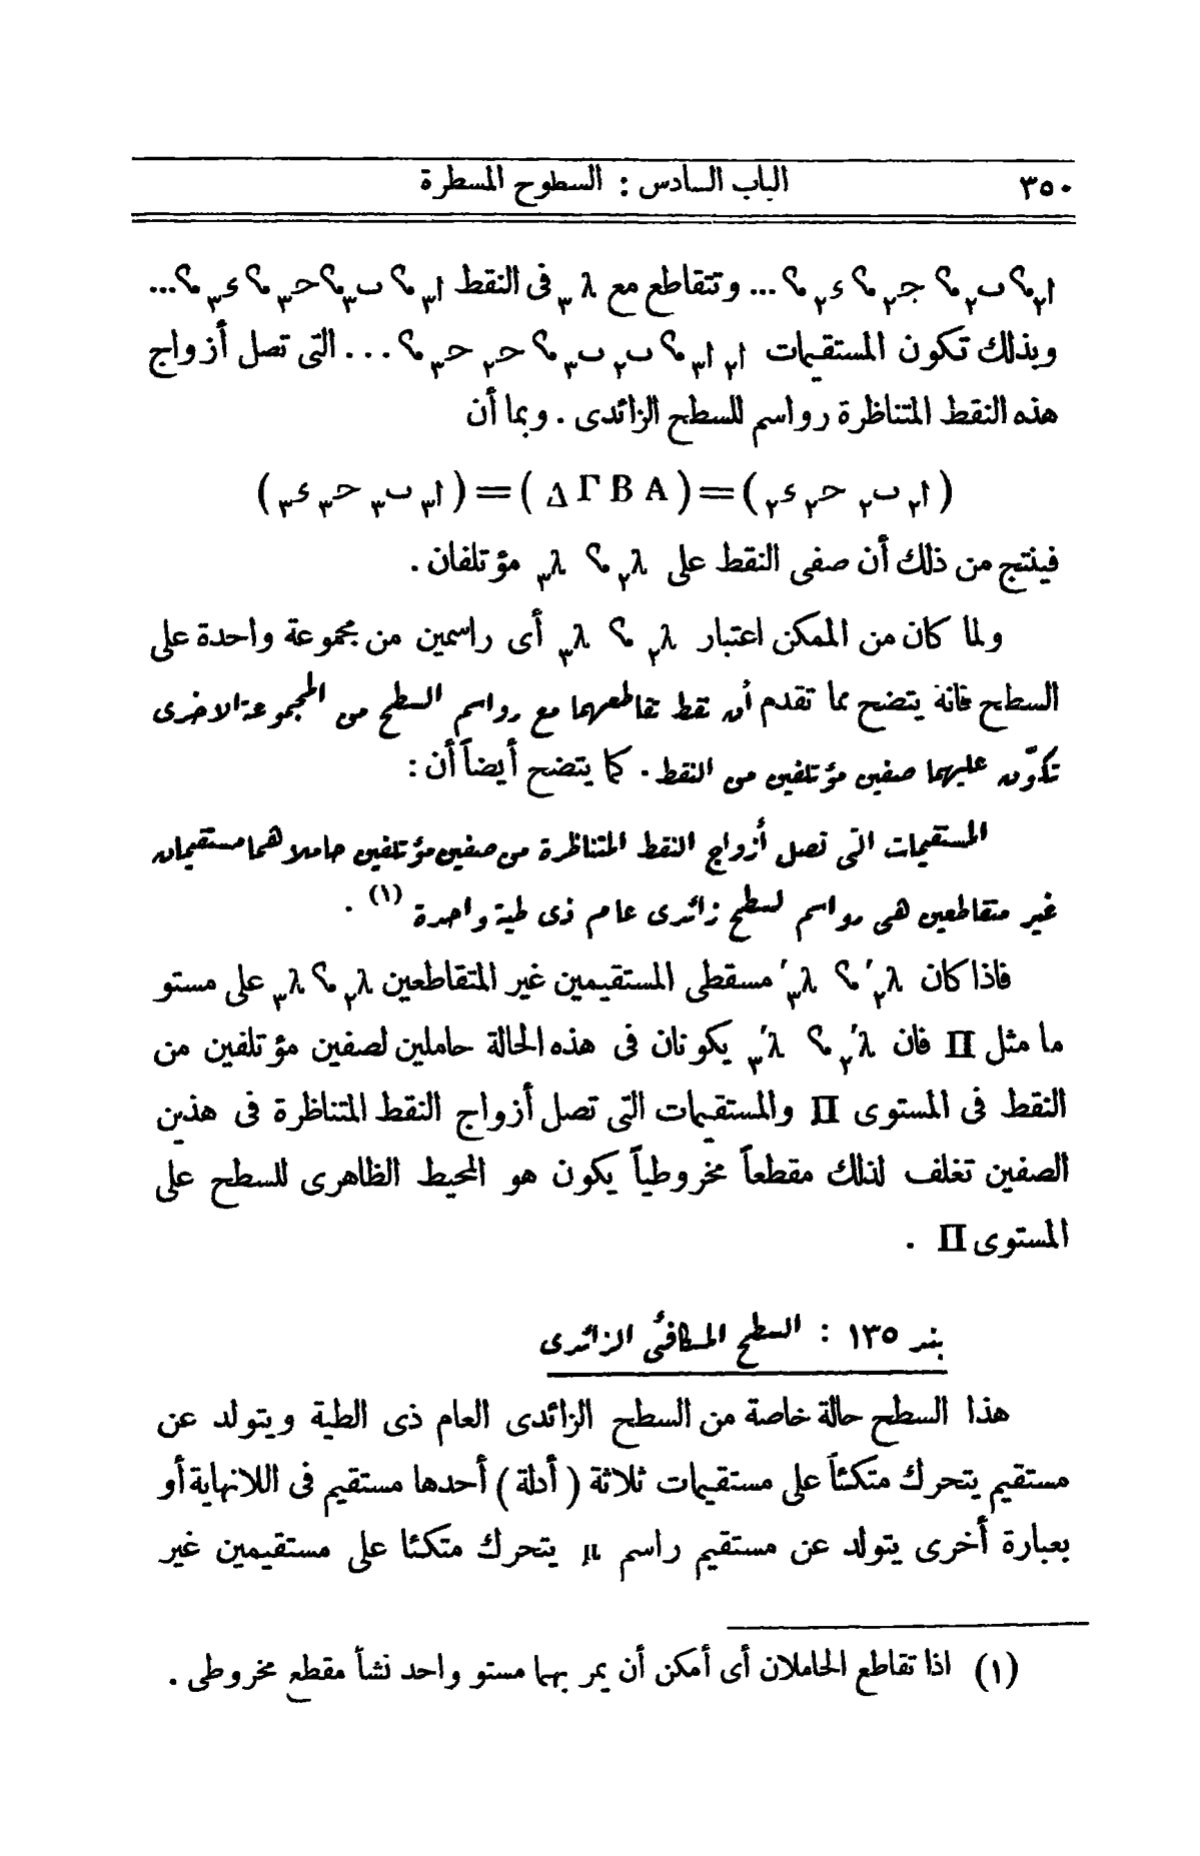 ٣٥٠ الباب السادس : السطوح المسطرة
ا٢ ؟ ب٢ ؟ جـ٢ ؟ ء٢ ؟ ... وتتقاطع مع λ٣ فى النقط ا٣ ؟ ب٣ ؟ حـ٣ ؟ ء٣ ؟ ...
وبذلك تكون المستقيمات ا٢ ا٣ ؟ ب٢ ب٣ ؟ حـ٢ حـ٣ ؟ ... التى تصل أزواج
هذه النقط المتناظرة رواسم للسطح الزائدى . وبما أن
( ا٢ ب٢ حـ٢ ء٢ ) = ( Δ Γ B A ) = ( ا٣ ب٣ حـ٣ ء٣ )
فينتج من ذلك أن صفى النقط على λ٢ ؟ λ٣ مؤتلفان .
ولما كان من الممكن اعتبار λ٢ ؟ λ٣ أى راسمين من مجموعة واحدة على
السطح فانه يتضح مما تقدم أن نقط تقاطعهما مع رواسم السطح من المجموعة الاخرى
تكوّن عليهما صفين مؤتلفين من النقط . كما يتضح أيضاً أن :
المستقيمات التى تصل أزواج النقط المتناظرة من صفين مؤتلفين حاملاهما مستقيمان
غير متقاطعين هى رواسم لسطح زائدى عام ذى طية واحدة (١) .
فاذا كان λ′٢ ؟ λ′٣ مسقطى المستقيمين غير المتقاطعين λ٢ ؟ λ٣ على مستو
ما مثل Π فان λ′٢ ؟ λ′٣ يكونان فى هذه الحالة حاملين لصفين مؤتلفين من
النقط فى المستوى Π والمستقيمات التى تصل أزواج النقط المتناظرة فى هذين
الصفين تغلف لذلك مقطعاً مخروطياً يكون هو المحيط الظاهرى للسطح على
المستوى Π .
بند ١٣٥ : السطح المكافئ الزائدى
هذا السطح حالة خاصة من السطح الزائدى العام ذى الطية ويتولد عن
مستقيم يتحرك متكئاً على مستقيمات ثلاثة ( أدلة ) أحدها مستقيم فى اللانهاية أو
بعبارة أخرى يتولد عن مستقيم راسم μ يتحرك متكئا على مستقيمين غير
(١) اذا تقاطع الحاملان أى أمكن أن يمر بهما مستو واحد نشأ مقطع مخروطى .